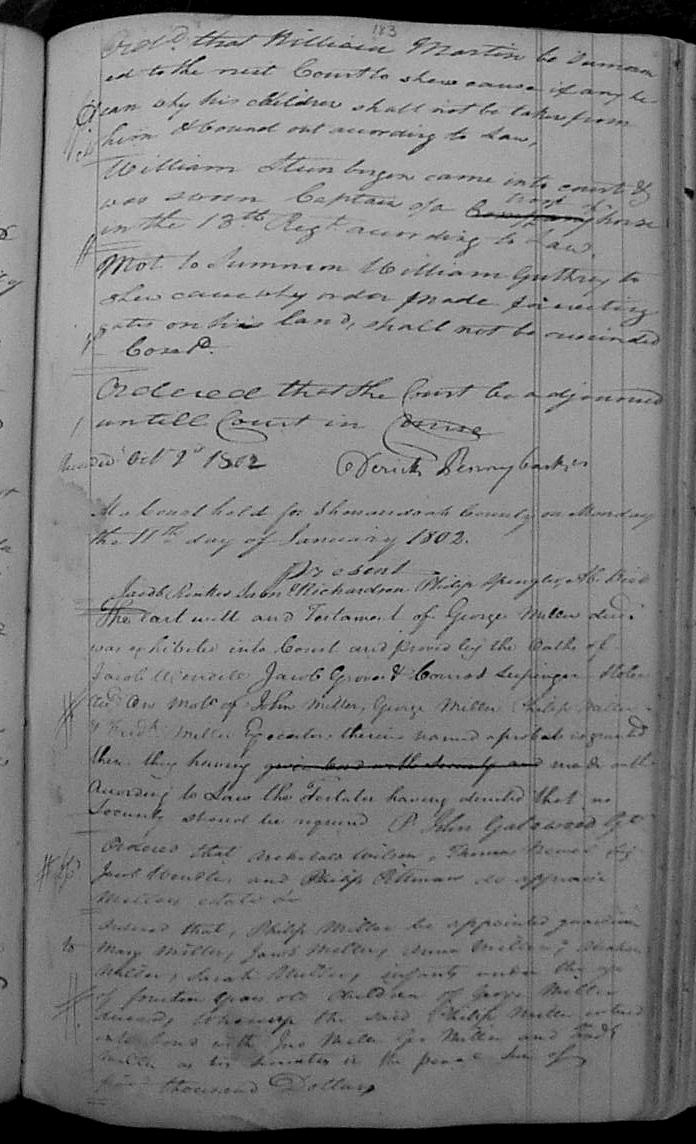 183
Ord'd. that William Martin be Summon
ed to the next Court to shew cause if any he
can why his Children shall not be taken from
him & bound out according to Law,
William Steenbergen came into court &
was sworn Captain of a Company troop of horse
in the 13th Regt according to Law.
Mot. to Summon William Guthrey to
shew cause why order made for erecting
gates on his land, shall not be rescinded
Contd.
Ordered that the Court be adjourned
untill Court in Course
Oct 1802
Derick Pennybacker
At a Court held for Shenandoah County on Monday
the 11th day of January 1802.
Present
Jacob Rinker John Richardson Philip Spengler, Ab. Bird
The last will and Testament of George Miller decd.
was exhibited into Court and proved by the Oaths of
Jacob Wendle, Jacob Grove & Conrad
On Moto of John Miller, George Miller Philip Miller
& Fredk Miller Executors therein named a probate is granted
them they having given bond with security and made oath
According to Law the Testator having directed that no
Security should be required P. John Gatewood
Ordered that Archibald Wilson, Thomas Newell
Jacob Wendle and Philip Pittman do appraise
Millers estate &c
Ordered that, Philip Miller be appointed guardian
Mary Miller, Jacob Miller, Anna Miller,
Miller, Sarah Miller, infants under the age
of fourteen years old Children of George Miller
deceased, Whereup the said Philip Miller entered
into bond with Jno Miller Geo Miller and Fredk
Miller as his securities in the penal Sum of
thousand Dollars